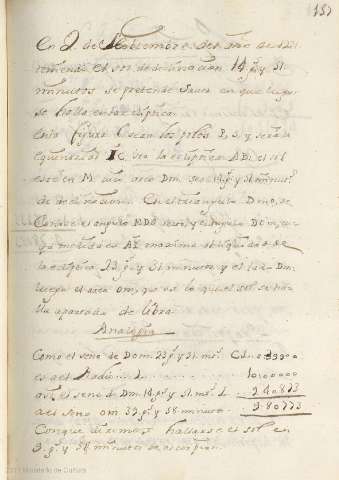 157
En 2 de Noviembre del año de
teniendo el sol de declinacion 14 gs. y 51
minutos se pretende saver en que lugar
se halla en la ecliptica
En la figura sean los polos P, S, y sera la
equinoccial la ecliptica el sol
este en M un arco Dm. 14 gs. y 51 minuts.
de declinacion. En el triangulo Dmo, se
conose el angulo MDO recto, y el angulo Dom, cu
ya medida es AI maxima obliquidad de
la ecliptica 23 gs. y 31 minutos, y el lado Dm
luego el arco om, que es lo que el sol se ha
lla apartado de libra.
Analogia
Como el seno de Dom. 23 gs. y 31 ms.
es al Radio L 10,00000
asi el seno de Dm. 14 gs. y 51. ms. L. 940873
al seno om 39. gs. y 58 minuto. 980773
Conque diremos hallarse el sol en
9. gs. y 58 minutos de escorpion.
2011 Ministerio de Cultura